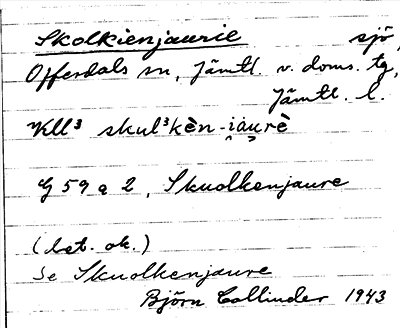 Skolkienjaurie sjö,
Offerdals sn, Jämtl. v. doms. tg,
Jämtl. l.
Kll³ skul³kèn-i̯au̯rè
G 59 a 2, Skuolkenjaure
(bet. ok.)
Se Skuolkenjaure
Björn Collinder 1943